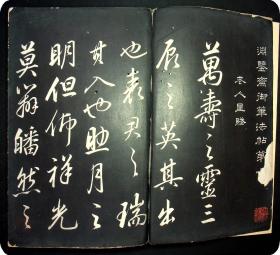 淵鑒齋御筆法帖第
老人星賦
萬壽之靈三
辰之英其出
也表君之瑞
其入也助月之
明但佈祥光
莫辨皤然之